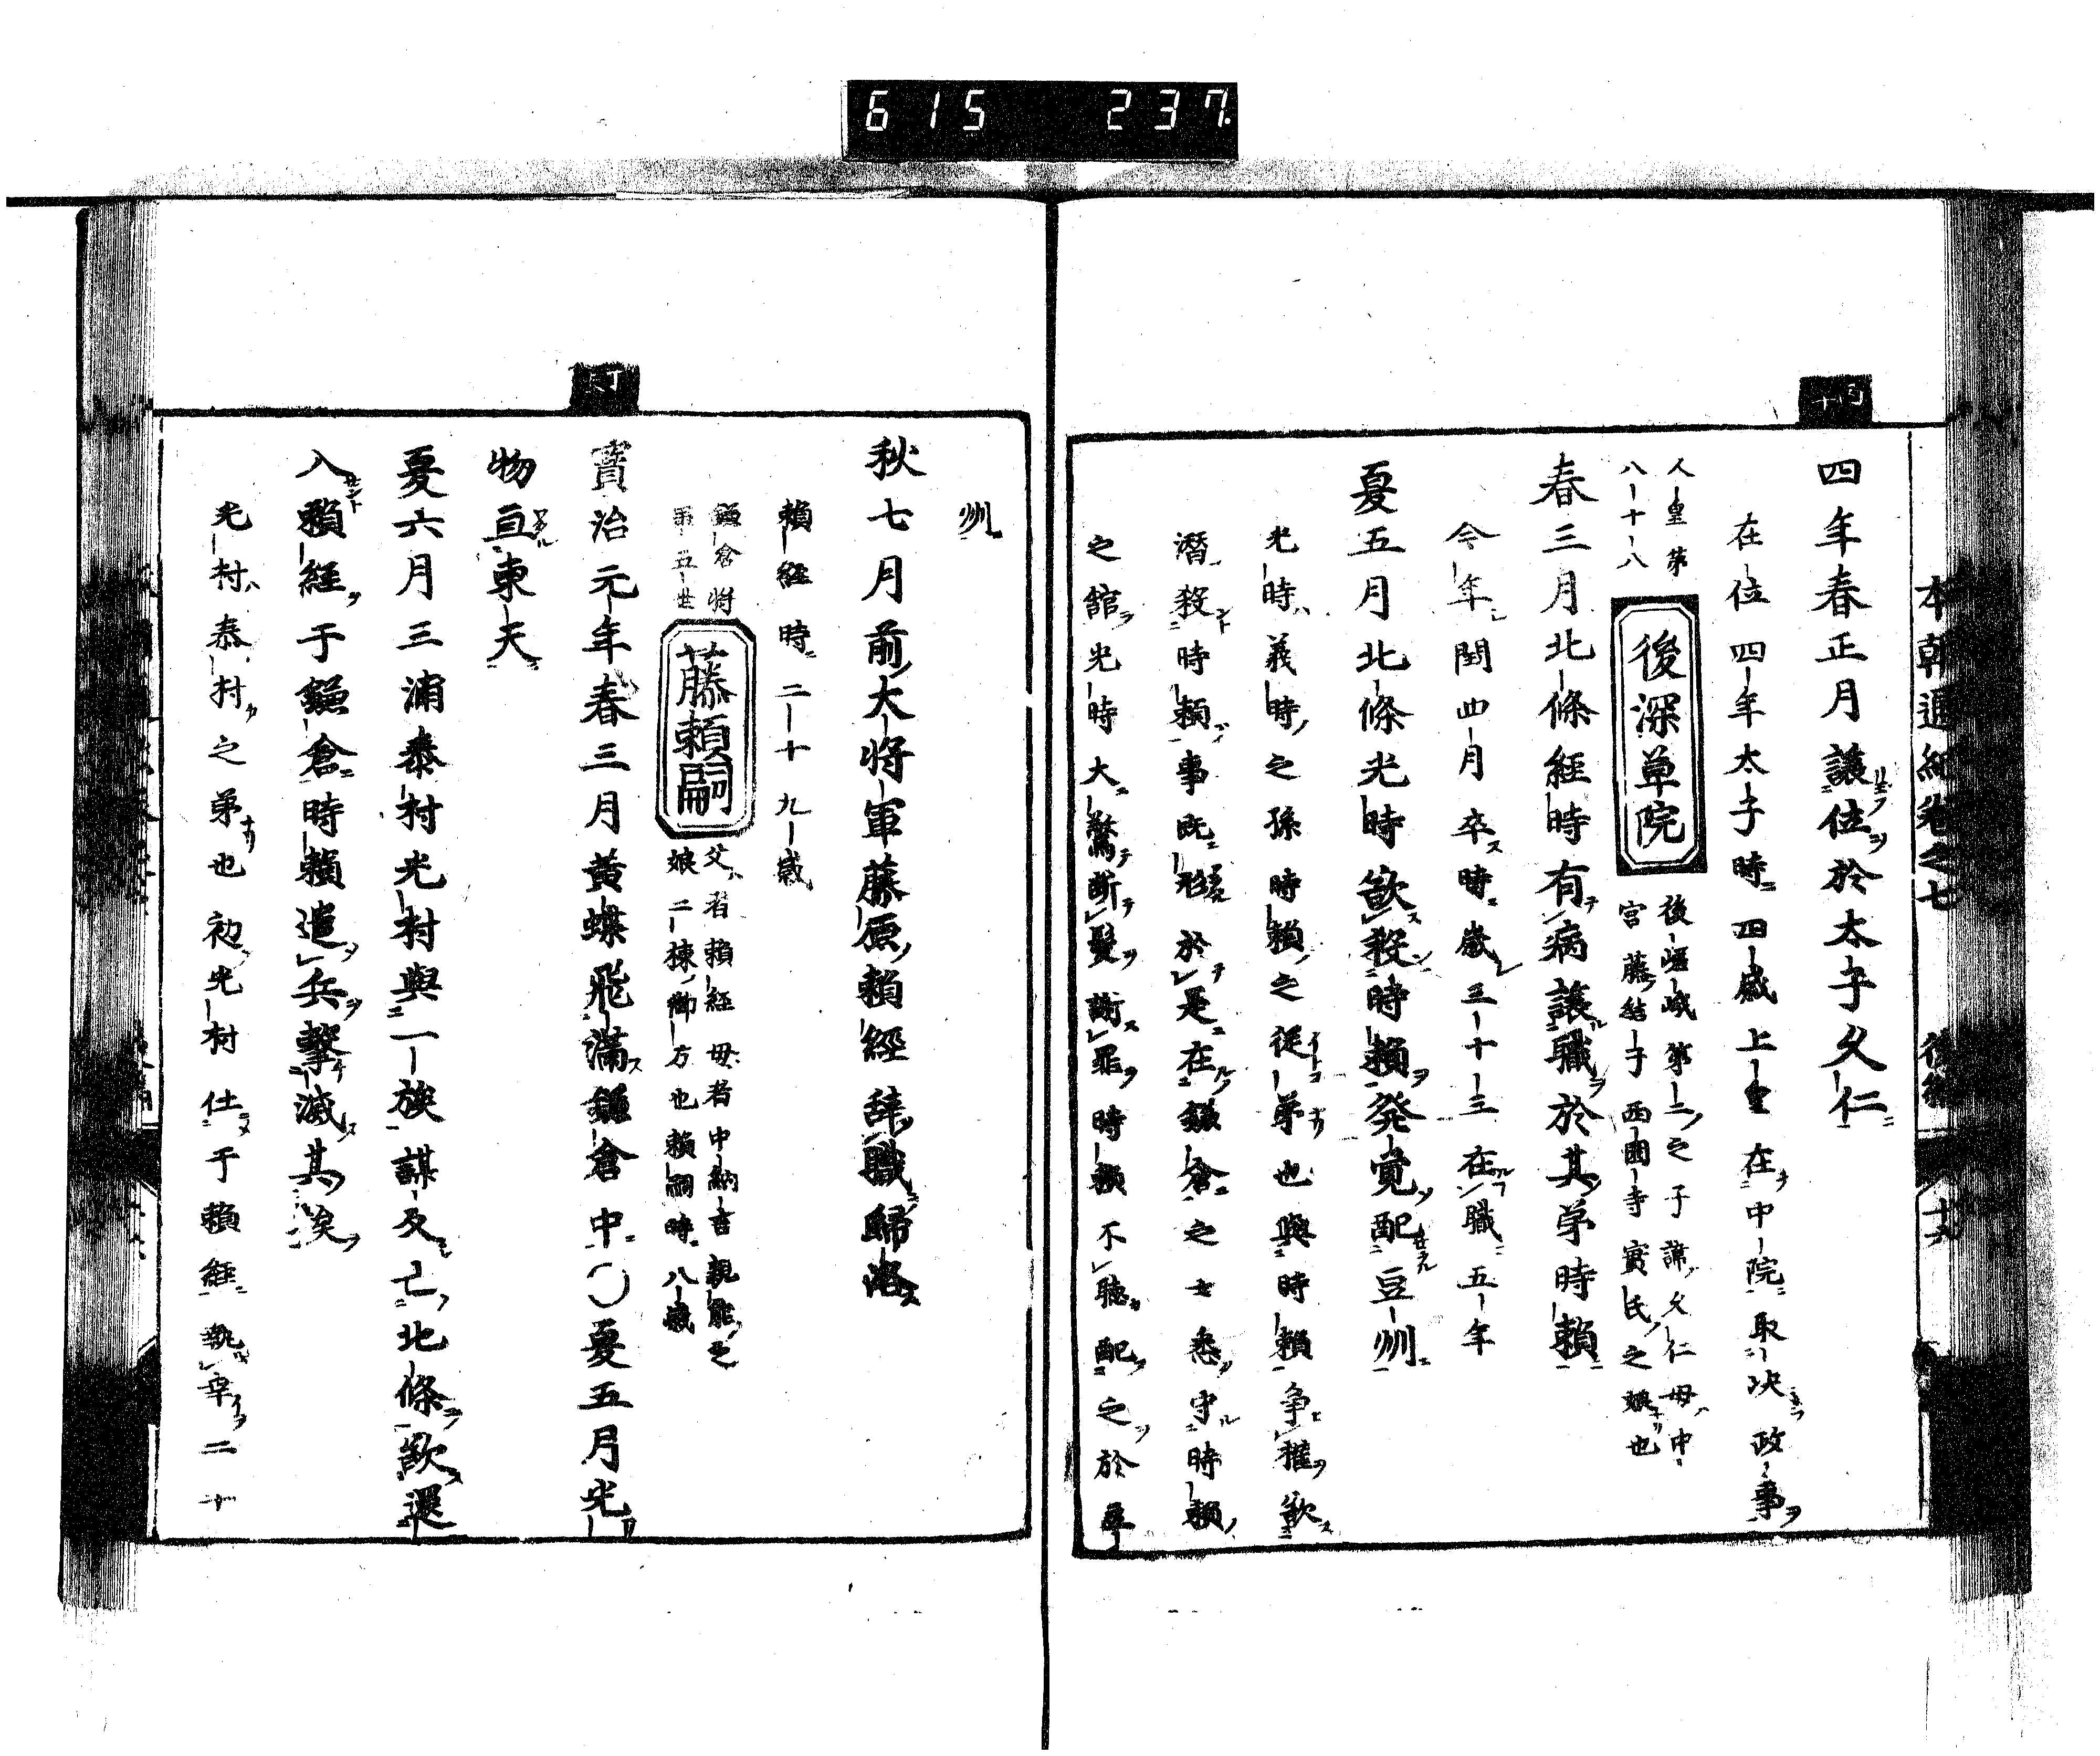 615 237
本朝通紀卷之七
四年春正月讓位於太子久仁
在位四年太子時四歲上皇在中院取决政事
人皇第
八十八
後深草院
後嵯峨第二之子諱久仁母中
宮藤結子西園寺實氏之娘也
春三月北條經時有病讓職於其弟時賴
今年閏四月卒時歲三十三在職五年
夏五月北條光時欲殺時賴發覚配豆州
光時義時之孫時賴之從弟也與時賴争權欲
潛殺時賴事既形於是在鎌倉之士悉守時賴
之舘光時大驚断髮謝罪時賴不聴配之於豆
州
秋七月前大将軍藤原賴經辞職歸洛
賴經時二十九歲
鎌倉将
第五世
藤頼嗣
父者賴經母者中納言親能之
娘二棟御方也賴嗣時八歲
寳治元年春三月黃蝶飛滿鎌倉中〇夏五月光
物亘東天
夏六月三浦泰村光村與一族謀反亡北條欲還
入賴經于鎌倉時賴遣兵擊滅其族
光村泰村之弟也初光村仕于賴經執事二十